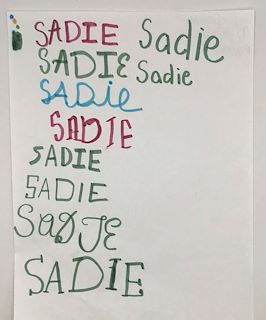 SADIE Sadie
SADIE Sadie
SADie
SADIE
SADIE
SADIE
SADIE
SADIE